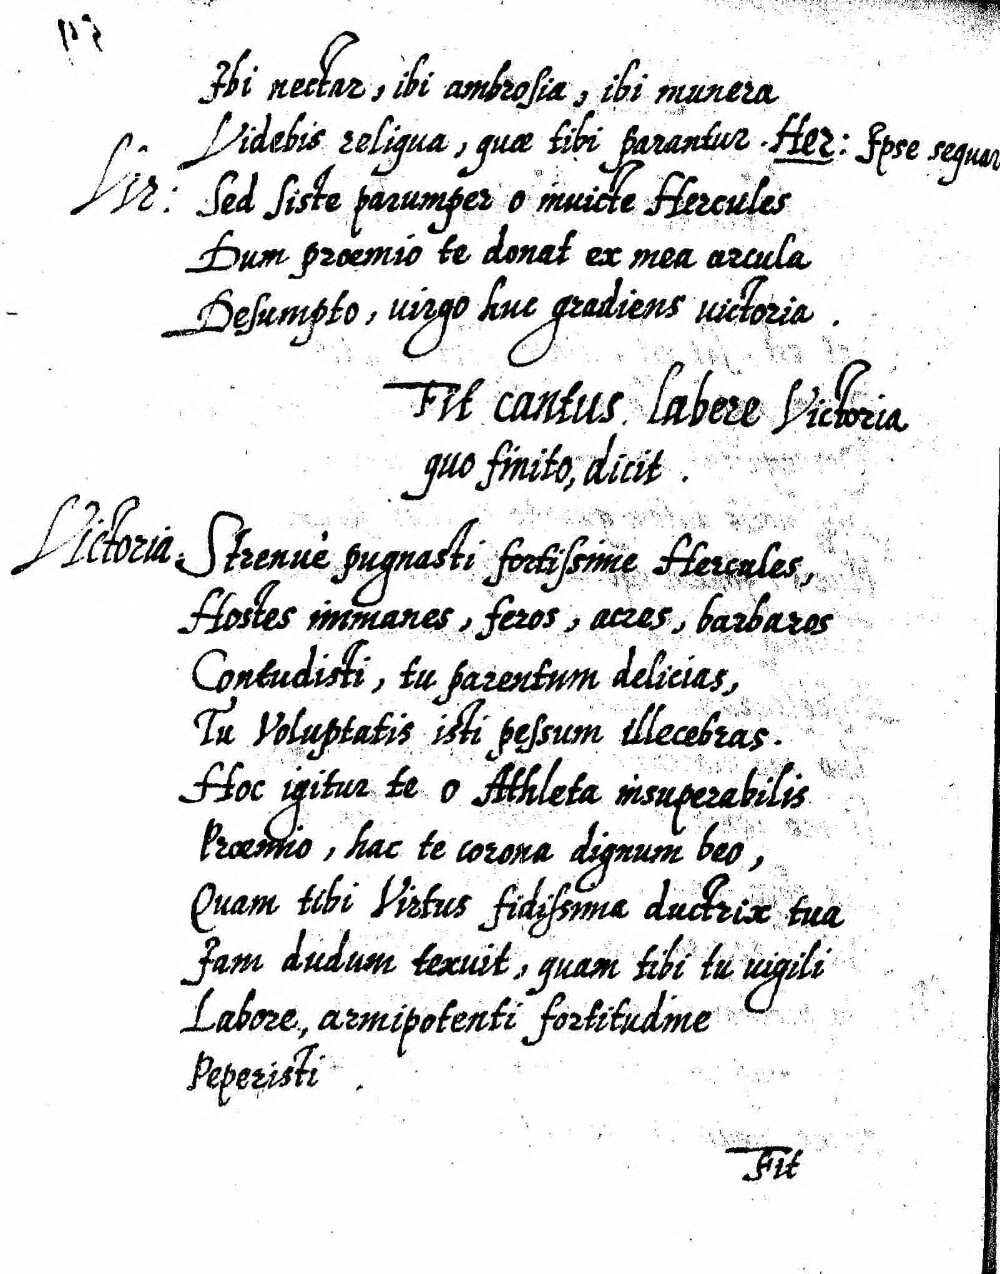 Ibi nectar, ibi ambrosia, ibi munera
Videbis reliqua, quæ tibi parantur. Her: Ipse sequar
Vir: Sed siste parumper o inuicte Hercules
Dum proemio te donat ex mea arcula
Desumpto, uirgo huc gradiens uictoria.
Fit cantus labere Victoria
quo finito, dicit.
Victoria. Strenuè pugnasti fortissime Hercules,
Hostes immanes, feros, acres, barbaros
Contudisti, tu parentum delicias,
Tu Voluptatis isti pessum illecebras.
Hoc igitur te o Athleta insuperabilis
Proemio, hac te corona dignum beo,
Quam tibi Virtus fidissima ductrix tua
Iam dudum texuit, quam tibi tu uigili
Labore, armipotenti fortitudine
Peperisti.
Fit